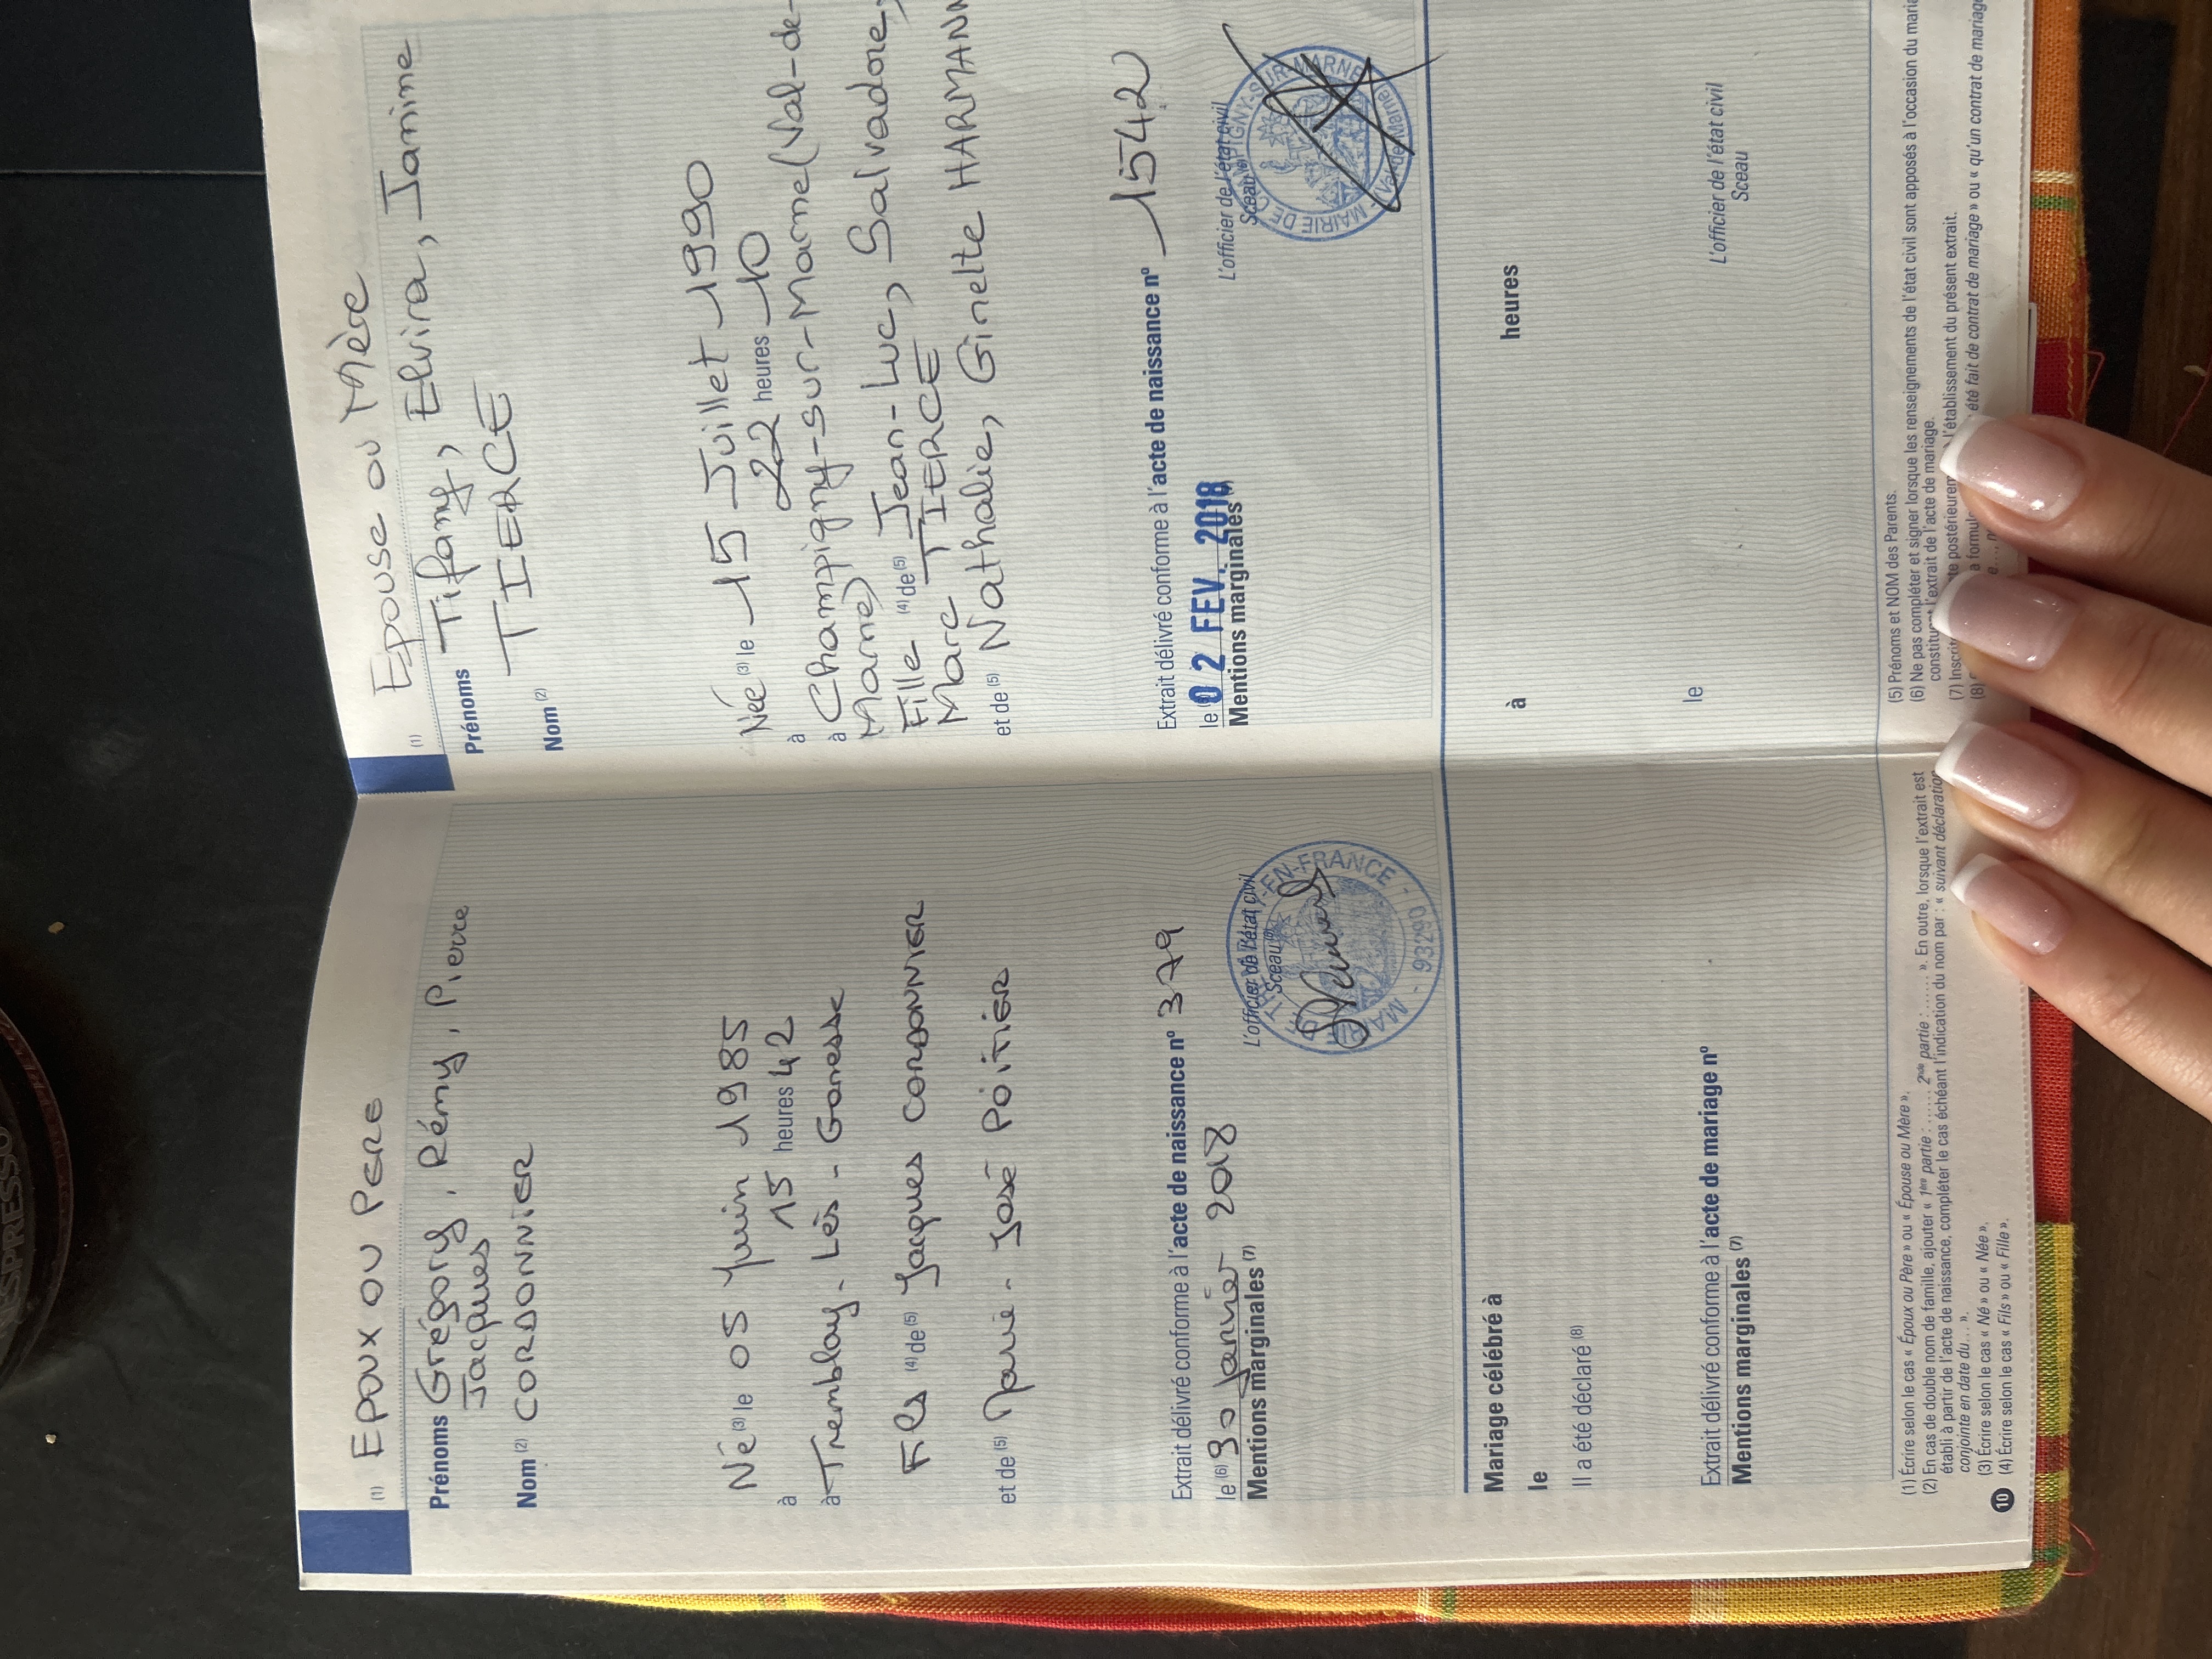 (1) EPOUX OU PERE
Prénoms Grégory, Rémy, Pierre
Jacques
Nom (2) CORDONNIER
Né (3) le 05 Juin 1985
à 15 heures 42
à Tremblay-Lès-Gonesse
Fils (4) de (5) Jacques CORDONNIER
et de (5) Marie-José POITIER
Extrait délivré conforme à l'acte de naissance nº 379
le (6) 30 Janvier 2018
L'officier de l'état civil
Sceau
EN-FRANCE - 93290
Mentions marginales (7)
Mariage célébré à
le
Il a été déclaré (8)
Extrait délivré conforme à l'acte de mariage nº
Mentions marginales (7)
(1) Écrire selon le cas « Époux ou Père » ou « Épouse ou Mère ».
(2) En cas de double nom de famille, ajouter « 1ère partie : ....... 2nde partie : ....... ». En outre, lorsque l'extrait est
établi à partir de l'acte de naissance, compléter le cas échéant l'indication du nom par : « suivant déclaration
conjointe en date du.... ».
(3) Écrire selon le cas « Né » ou « Née ».
(4) Écrire selon le cas « Fils » ou « Fille ».
10
(1) Epouse ou Mère
Prénoms Tifany, Elvira, Janine
Nom (2) TIERCE
Née (3) le 15 Juillet 1990
à 22 heures 10
à Champigny-sur-Marne (Val-de-
Marne)
Fille (4) de (5) Jean-Luc, Salvadore,
Marc TIERCE
et de (5) Nathalie, Ginette HARMANN
Extrait délivré conforme à l'acte de naissance nº 1542
le 02 FEV. 2018
L'officier de l'état civil
Sceau
MAIRIE DE SUR-MARNE (Val-de-Marne)
Mentions marginales
à heures
le
L'officier de l'état civil
Sceau
(5) Prénoms et NOM des Parents.
(6) Ne pas compléter et signer lorsque les renseignements de l'état civil sont apposés à l'occasion du
l'extrait de l'acte de mariage.
(7) postérieurement l'établissement du présent extrait.
(8) formule été fait de contrat de mariage » ou « qu'un contrat de mariage
ESPRESSO